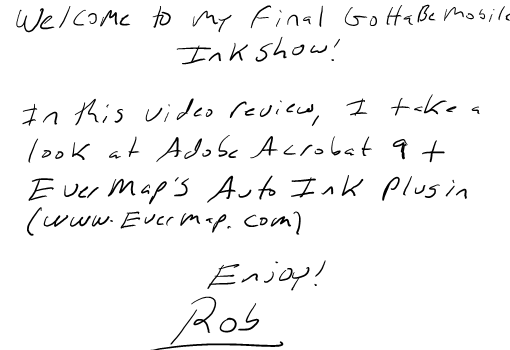 Welcome to my Final GottaBeMobile
InkShow!
In this video review, I take a
look at Adobe Acrobat 9 +
EverMap's Auto Ink Plugin
(www.Evermap.com)
Enjoy!
Rob